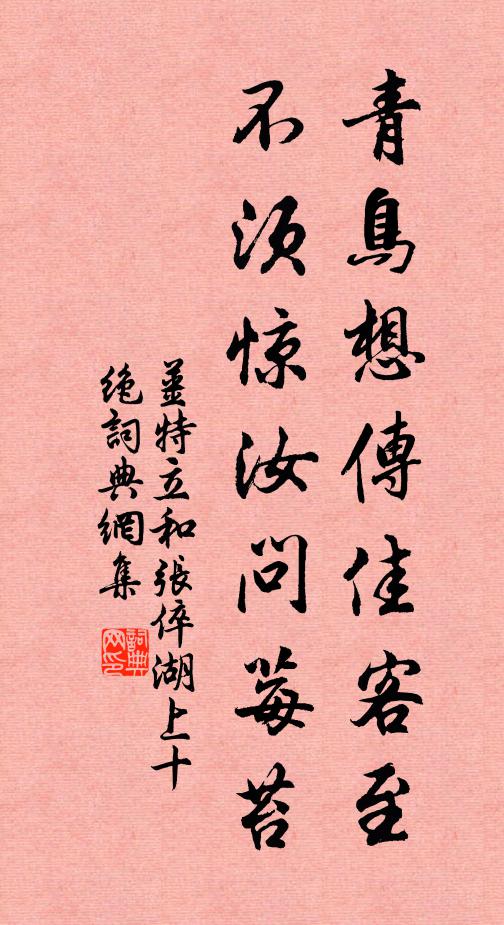 青鳥想傳佳客至
不須惊汝問莓苔
薑特立和張倅湖上十
绝詞典網集
詞典网印